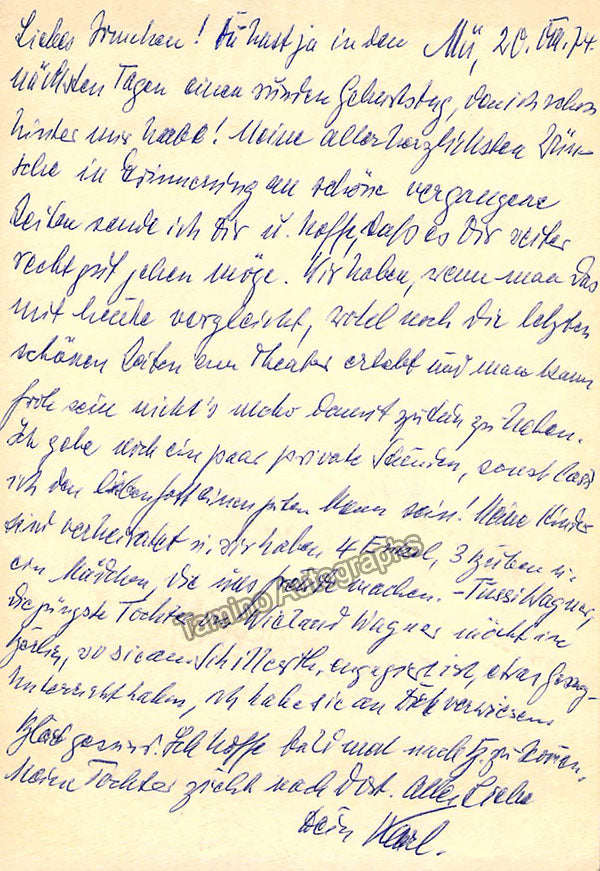 Liebes Irmchen! Du hast ja in den Mü, 20. VIII. 74.
nächsten Tagen einen runden Geburtstag, den ich schon
hinter mir habe! Meine allerherzlichsten Wün-
sche in Erinnerung an schöne vergangene
Zeiten sende ich Dir u. hoffe, daß es Dir weiter
recht gut gehen möge. Wir haben, wenn man das
mit heute vergleicht, wohl noch die letzten
schönen Zeiten am Theater erlebt und man kann
froh sein nicht's mehr damit zu tun zu haben.
Ich gebe noch ein paar private Stunden, sonst lass
ich den lieben Gott einen guten Mann sein! Meine Kinder
sind verheiratet u. wir haben 4 Enkel, 3 Buben u.
ein Mädchen, die uns Freude machen. - Wagner,
die jüngste Tochter von Wieland Wagner möchte in
Berlin, wo sie am Schillerth. engagiert ist, etwas Gesang-
Unterricht haben, ich habe sie an Dich verwiesen.
Ich hoffe bald mal nach B. zu kommen.
Meine Tochter zieht nach dort. Alles Liebe
Dein Karl.
Tamino Autographs